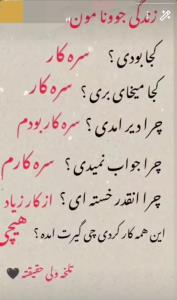 زندگی جوونا مون
کجا بودی؟ سره کار
کجا میخای بری؟ سره کار
چرا دیر امدی؟ سره کار بودم
چرا جواب نمیدی؟ سره کارم
چرا انقدر خسته ای؟ از کار زیاد
این همه کار کردی چی گیرت امده؟ هیچی
تلخه ولی حقیقته 🖤